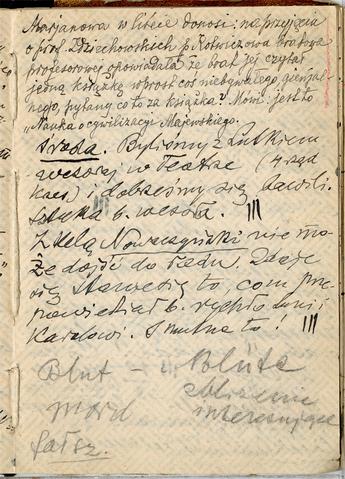 Marjanowa w liście donosi: na przyjęciu
u prof. Dziechowskich p. Rotwiczowa bratowa
profesorowej opowiadała że brat jej czytał
jedną książkę wprost coś niebywałego, genjal-
nego, pytany co to za książka? Mówi: jest to
"Nauka o cywilizacji Majewskiego.
Środa. Byliśmy z Lutkiem
wczoraj w Teatrze (4 rząd
kaes) i dobrześmy się bawili.
Sztuka b. wesoła. |||
Z Helą Nowaczyński nie mo-
że dojść do ładu. Zdaje
się stawać się to, com prze-
powiedział b. rychło Luni i
Karolowi. Smutne to! |||
Blut – " Blüte
mord
interesujące
fałsz.